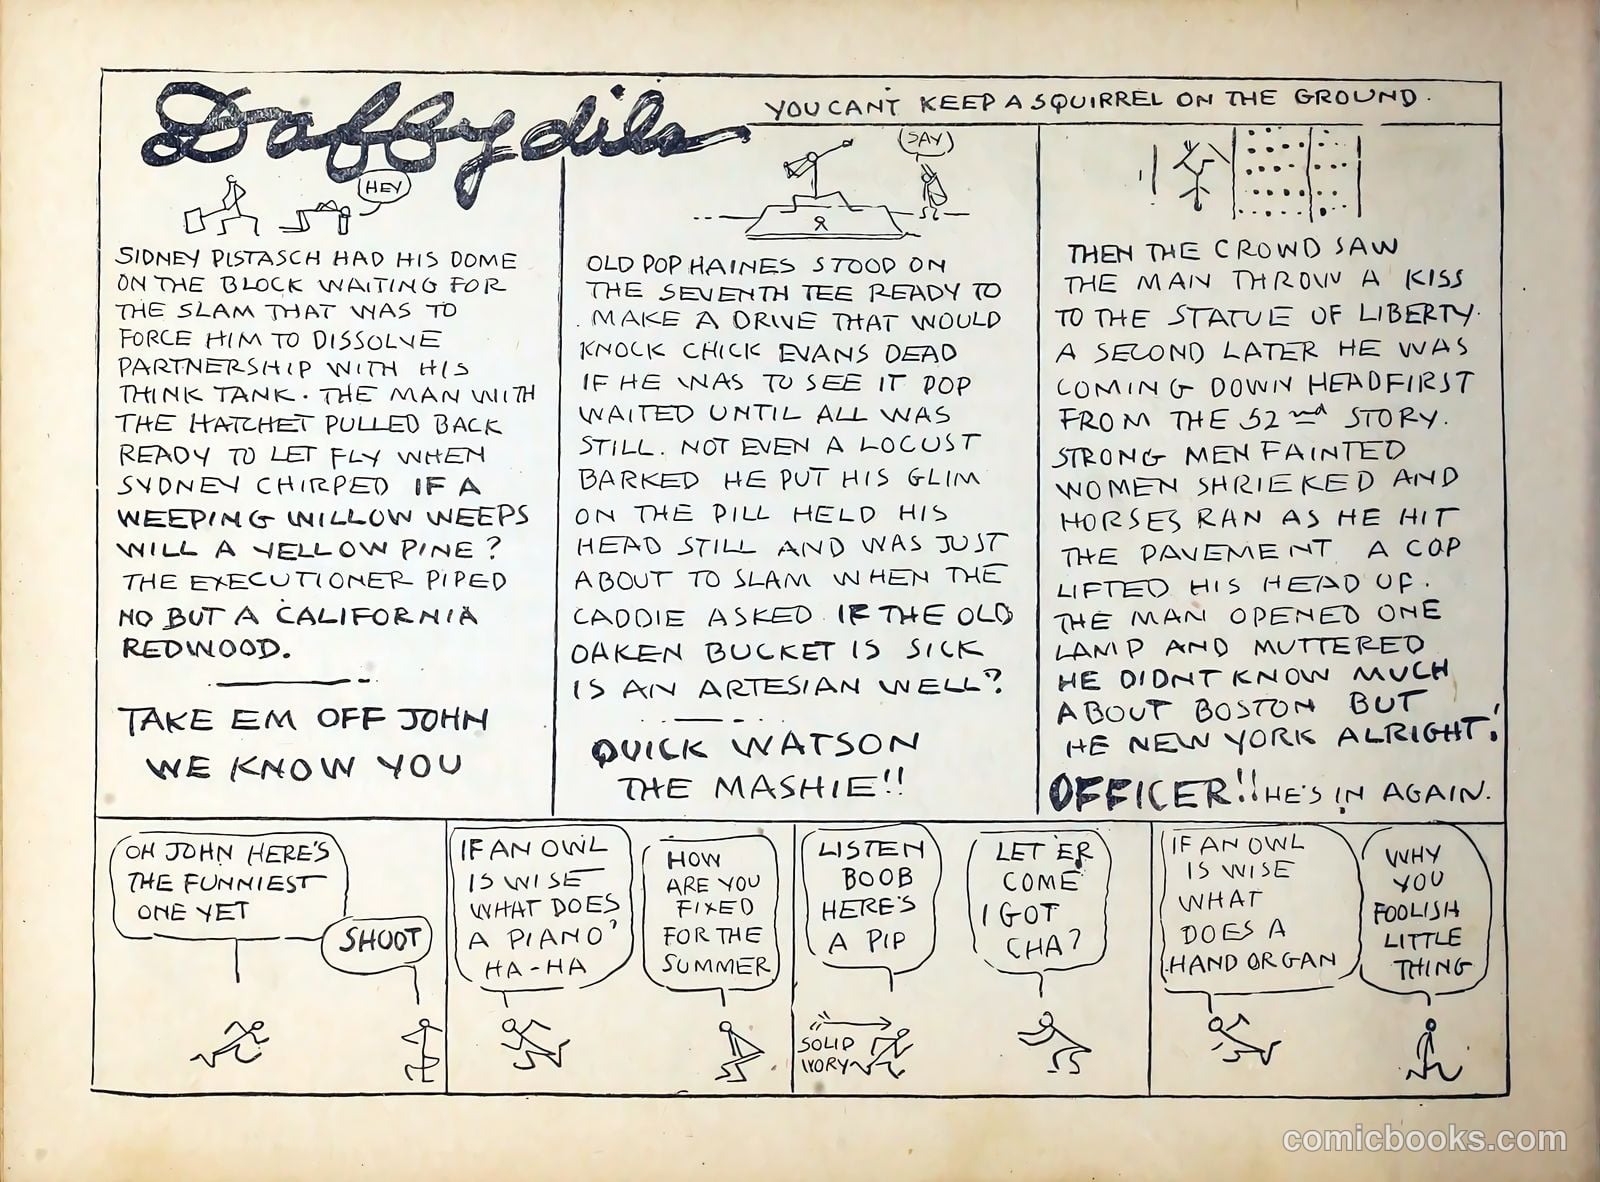 Daffydils
YOU CANT KEEP A SQUIRREL ON THE GROUND.
HEY
SIDNEY PISTASCH HAD HIS DOME
ON THE BLOCK WAITING FOR
THE SLAM THAT WAS TO
FORCE HIM TO DISSOLVE
PARTNERSHIP WITH HIS
THINK TANK. THE MAN WITH
THE HATCHET PULLED BACK
READY TO LET FLY WHEN
SYDNEY CHIRPED IF A
WEEPING WILLOW WEEPS
WILL A YELLOW PINE?
THE EXECUTIONER PIPED
NO BUT A CALIFORNIA
REDWOOD.
TAKE EM OFF JOHN
WE KNOW YOU
SAY
OLD POP HAINES STOOD ON
THE SEVENTH TEE READY TO
MAKE A DRIVE THAT WOULD
KNOCK CHICK EVANS DEAD
IF HE WAS TO SEE IT POP
WAITED UNTIL ALL WAS
STILL. NOT EVEN A LOCUST
BARKED HE PUT HIS GLIM
ON THE PILL HELD HIS
HEAD STILL AND WAS JUST
ABOUT TO SLAM WHEN THE
CADDIE ASKED IF THE OLD
OAKEN BUCKET IS SICK
IS AN ARTESIAN WELL?
QUICK WATSON
THE MASHIE!!
THEN THE CROWD SAW
THE MAN THROW A KISS
TO THE STATUE OF LIBERTY.
A SECOND LATER HE WAS
COMING DOWN HEADFIRST
FROM THE 52nd STORY.
STRONG MEN FAINTED
WOMEN SHRIEKED AND
HORSES RAN AS HE HIT
THE PAVEMENT A COP
LIFTED HIS HEAD UP.
THE MAN OPENED ONE
LAMP AND MUTTERED
HE DIDNT KNOW MUCH
ABOUT BOSTON BUT
HE NEW YORK ALRIGHT!
OFFICER!! HE'S IN AGAIN.
OH JOHN HERE'S
THE FUNNIEST
ONE YET
SHOOT
IF AN OWL
IS WISE
WHAT DOES
A PIANO?
HA-HA
HOW
ARE YOU
FIXED
FOR THE
SUMMER
LISTEN
BOOB
HERE'S
A PIP
SOLID
IVORY
LET ER
COME
I GOT
CHA?
IF AN OWL
IS WISE
WHAT
DOES A
HAND ORGAN
WHY
YOU
FOOLISH
LITTLE
THING
comicbooks.com